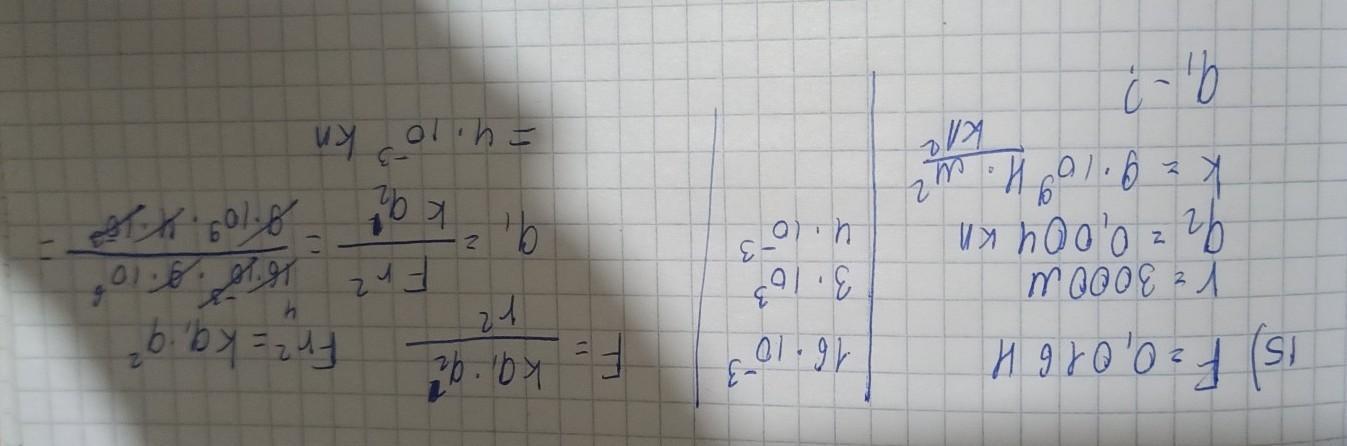 15) F = 0,016 Н
r = 3000 м
q₂ = 0,004 кл
k = 9·10⁹ Н·м²/кл²
q₁ - ?
16·10⁻³
3·10³
4·10⁻³
F = kq₁·q₂/r² Fr² = kq₁·q₂
q₁ = Fr²/kq₂ = 16·10⁻³·9·10⁶/9·10⁹·4·10⁻³ =
4
= 4·10⁻³ кл